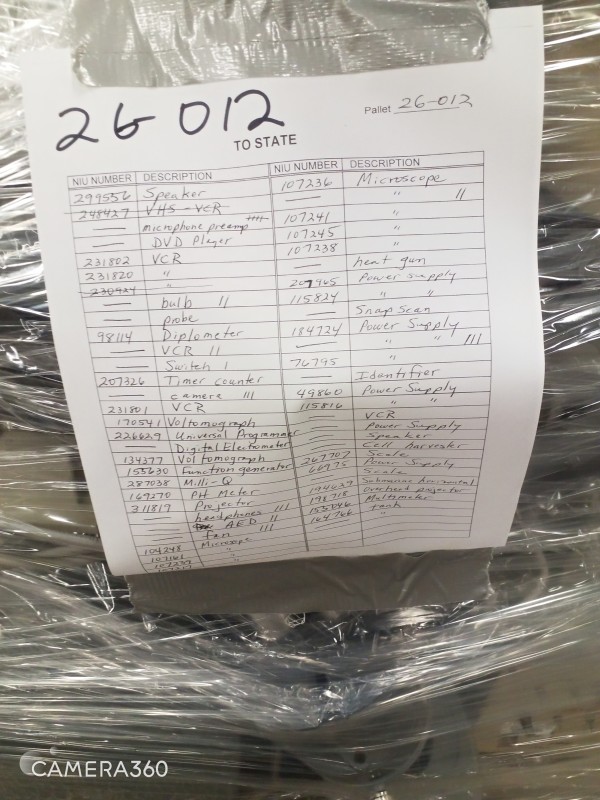 26-012
Pallet 26-012
TO STATE
NIU NUMBER DESCRIPTION
299556 Speaker
248427 VHS-VCR
— microphone preamp
— DVD Player
231802 VCR
231820 "
230424 "
— bulb II
— probe
98114 Diplometer
— VCR II
— Switch I
207326 Timer counter
— camera III
231801 VCR
170541 Voltomograph
226629 Universal Programmer
— Digital Electrometer
134377 Voltomograph
155630 Function generator
287038 Milli-Q
169270 PH Meter
311819 Projector
— headphones III
— AED II
— fan III
104248 Microscope
107161 "
107239 "
NIU NUMBER DESCRIPTION
107236 Microscope
— " II
107241 "
107245 "
107238 "
— heat gun
207965 Power supply
115824 " "
— Snap Scan
184724 Power Supply
— " " III
76795 "
— Identifier
49860 Power Supply
115816 " "
— VCR
— Power Supply
— Speaker
— Cell harvester
267707 Scale
60975 Power Supply
— Scale
194627 Submarine horizontal
191718 Overhead projector
155046 Multimeter
164766 tank
— "
CAMERA360